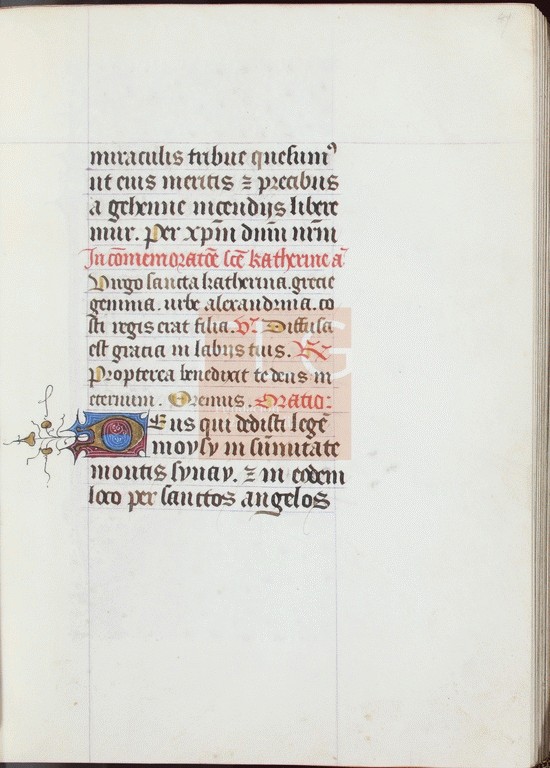 47
miraculis tribue quesumꝰ
ut eius meritis ⁊ precibus
a gehenne incendijs libere
mur. Per xp̄m dn̄m nr̄m
In cōmemoratōe scē katherine aᷓ
Virgo sancta katherina. grecie
gemma. urbe alexandrina. co
sti regis erat filia. V̸. Diffusa
est gratia in labijs tuis. R̸.
Propterea benedixit te deus in
eternum. Oremus. Oratio:
Deus qui dedisti legē
moysy in sūmitate
montis synay. ⁊ in eodem
loco per sanctos angelos